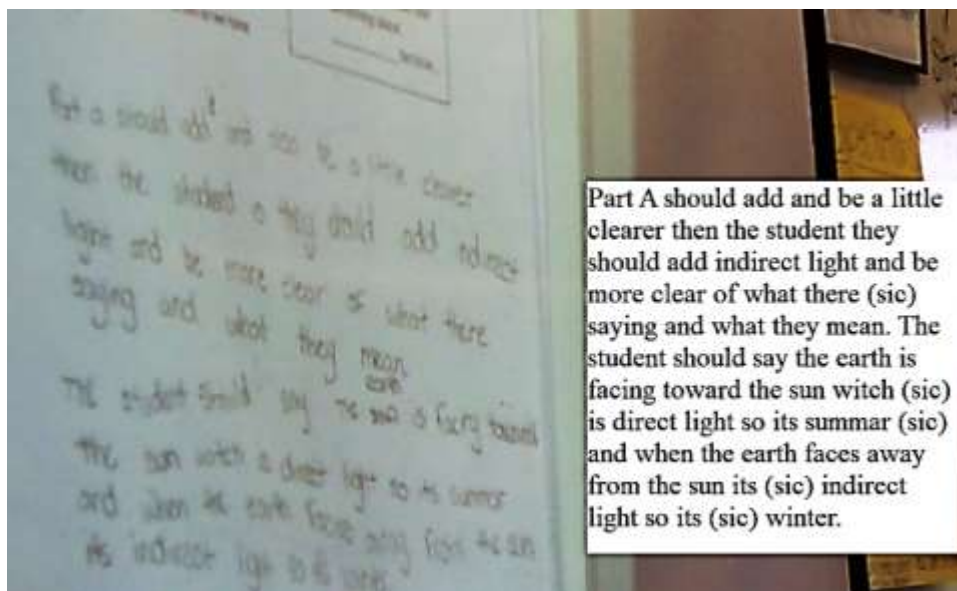 Part a should add and be a little clearer
then the student a they should add indirect
light and be more clear of what there
saying and what they mean
The student should say the is facing toward
the sun witch is direct light so its summar
and when the earth faces away from the sun
its indirect light so its winter
Part A should add and be a little
clearer then the student they
should add indirect light and be
more clear of what there (sic)
saying and what they mean. The
student should say the earth is
facing toward the sun witch (sic)
is direct light so its summar (sic)
and when the earth faces away
from the sun its (sic) indirect
light so its (sic) winter.